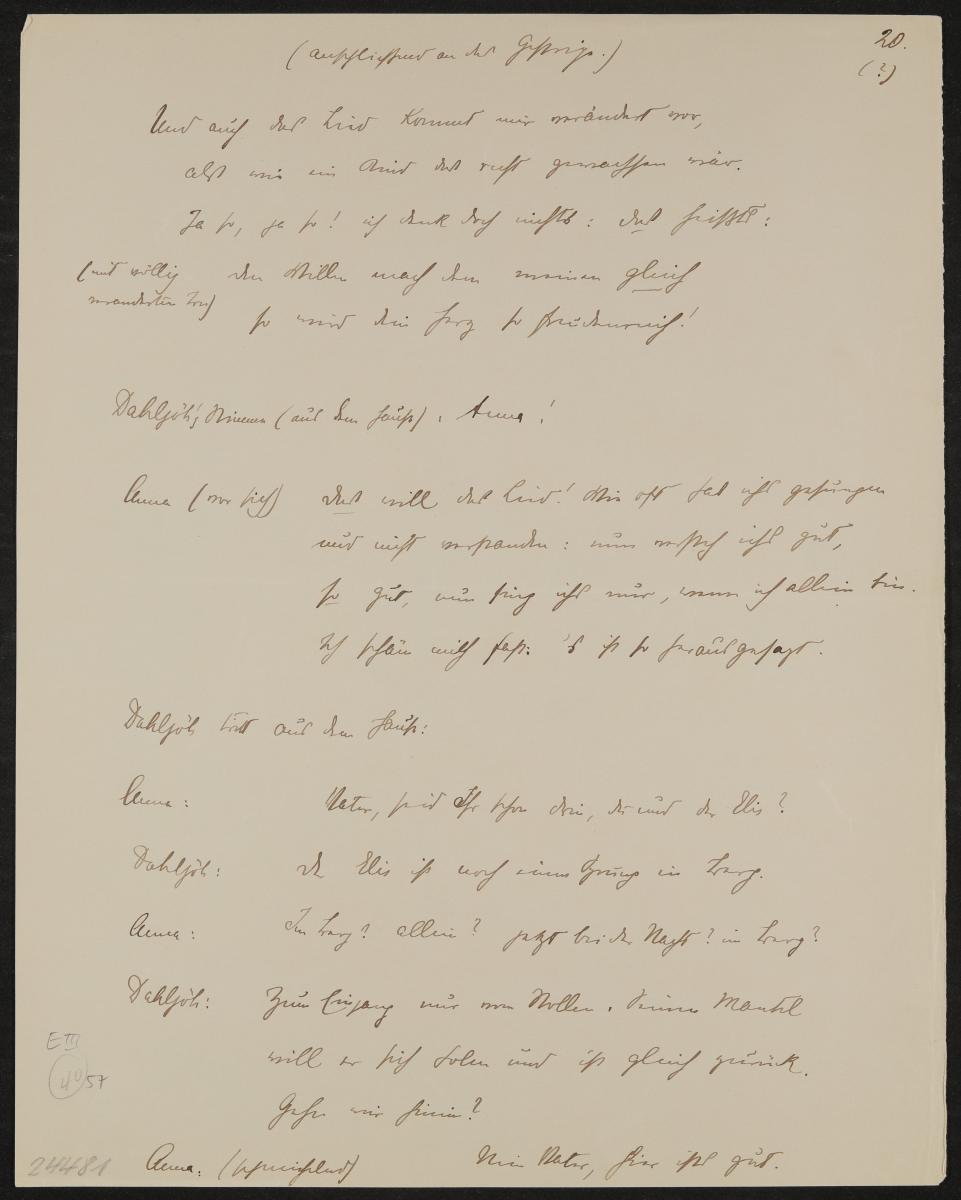 20.
(?)
(anschliessend an das Gespräch.)
Und auch das Lied kommt mir verändert vor,
als wie ein Kind das recht gewachsen wär.
Ja so, ja so! ich denk doch nichts: das heissts:
(mit völlig
verändertem Ton)
den Willen mach dem meinen gleich
so wird dein Herz so freudenreich!
Dahljöh's Stimme (aus dem Hause). Anna!
Anna (vor sich) Das will das Lied! Wie oft hab ichs gesungen
und nicht verstanden: nun versteh ichs gut,
so gut, nun sing ichs nur, wenn ich allein bin.
Ich schäm mich fast: 's ist so herausgesagt.
Dahljöh tritt aus dem Hause:
Anna: Vater, seid Ihr schon drin, du und der Elis?
Dahljöh: Der Elis ist noch einen Sprung im Berg.
Anna: Im Berg? allein? jetzt bei der Nacht? im Berg?
Dahljöh: Zum Eingang nur vom Stollen. Seinen Mantel
will er sich holen und ist gleich zurück.
Gehn wir hinein?
Anna: (schmeichelnd) Nein Vater, hier ists gut.
E III
40
57
24481